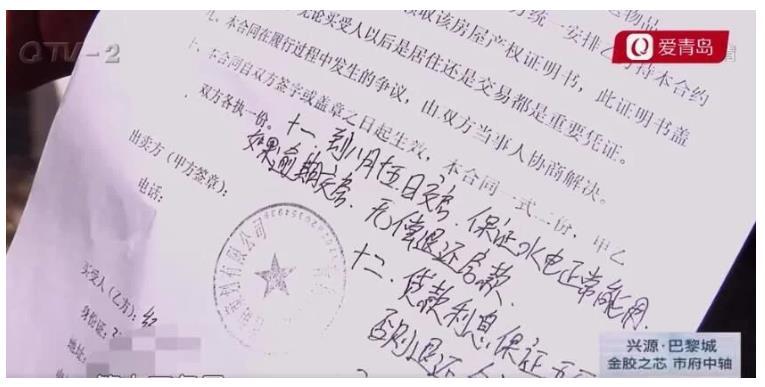 QTV-2
爱青岛
物品
方统一安排乙方持本合约
领取该房屋产权证明书，此证明书盖
无论买受人以后是居住还是交易都是重要凭证。
九、本合同在履行过程中发生的争议，由双方当事人协商解决。
十、本合同自双方签字或盖章之日起生效，本合同一式二份，甲乙
双方各执一份。
十一、到八月十五日交房，保证水电正常能用，
如果逾期交房，无偿退还房款
十二、贷款利息，保证
否则退还
出卖方（甲方签章）：
电话：
料有限公司
买受人（乙方）：
身份证：
地址：
电话
兴源·巴黎城
金胶之芯 市府中轴